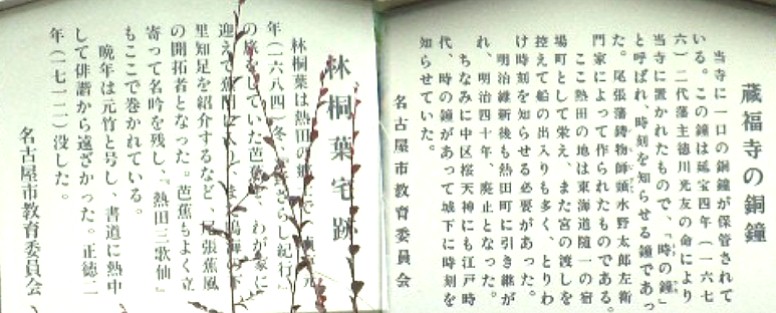 蔵福寺の銅鐘
当寺に一口の銅鐘が保管されて
いる。この鐘は延宝四年(一六七
六)二代藩主徳川光友の命により
当寺に置かれたもので、「時の鐘」
と呼ばれ、時刻を知らせる鐘であっ
た。尾張藩鋳物師頭水野太郎左衛
門家によって作られたものである。
ここ熱田の地は東海道随一の宿
場町として栄え、また宮の渡しを
控えて船の出入りも多く、とりわ
け時刻を知らせる必要があった。
明治維新後も熱田町に引き継が
れ、明治四十年、廃止となった。
ちなみに中区桜天神にも江戸時
代、時の鐘があって城下に時刻を
知らせていた。
名古屋市教育委員会
林桐葉宅跡
林桐葉は熱田の郷
年(一六八四)冬、さらし紀行』
の旅をしていた芭蕉を、わが家に
迎えて蕉門に
里知足を紹介するなど、尾張蕉風
の開拓者となった。芭蕉もよく立
寄って名吟を残し、『熱田三歌仙』
もここで巻かれている。
晩年は元竹と号し、書道に熱中
して俳諧から遠ざかった。正徳二
年(一七一二)没した。
名古屋市教育委員会